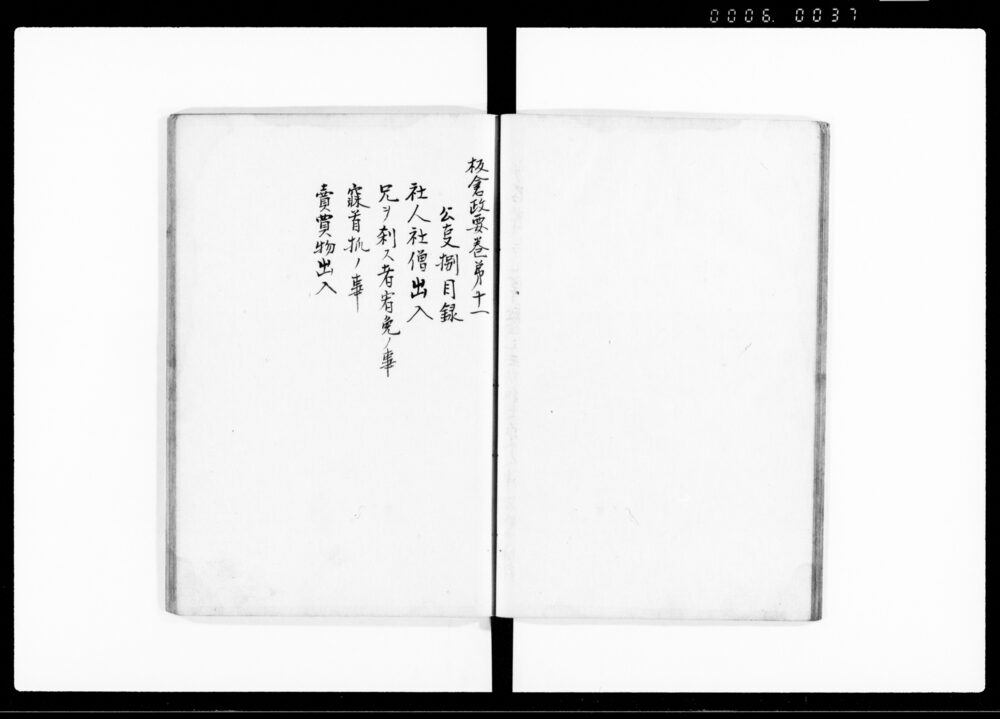 0006. 0037
板倉政要巻第十一
公叓捌目録
社人社僧出入
兄ヲ刺ス者宥免ノ亊
寐首抓ノ亊
賣買物出入